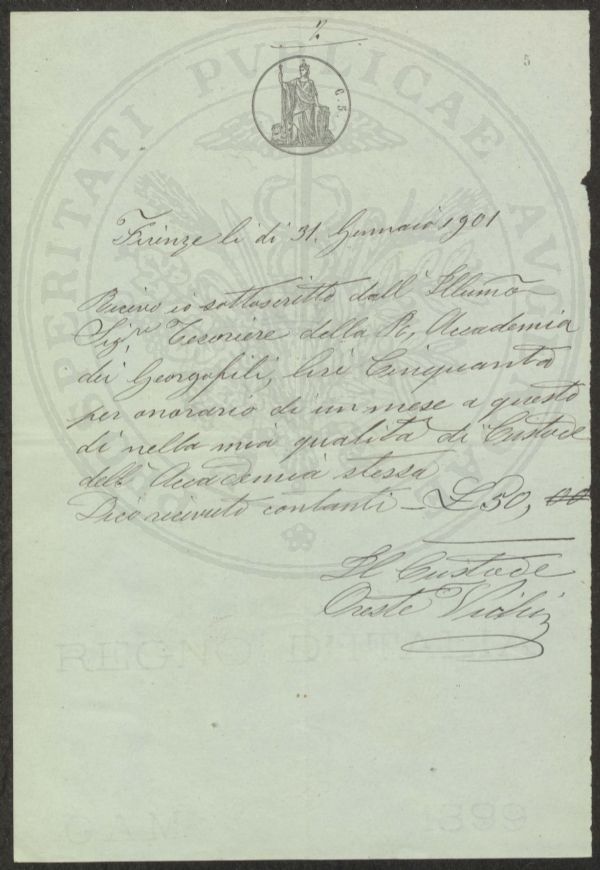 2
5
PROSPERITATI PUBLICAE AUGENDAE
C. 5.
Firenze li di 31. Gennaio 1901
Ricevo io sottoscritto dall' Illumo
Sigre Tesoriere della R. Accademia
dei Georgofili, lire Cinquanta
per onorario di un mese a questo
dì nella mia qualità di Custode
dell' Accademia stessa
Dico ricevuto contanti - £ 50, 00
Il Custode
Oreste
REGNO D'ITALIA
1899